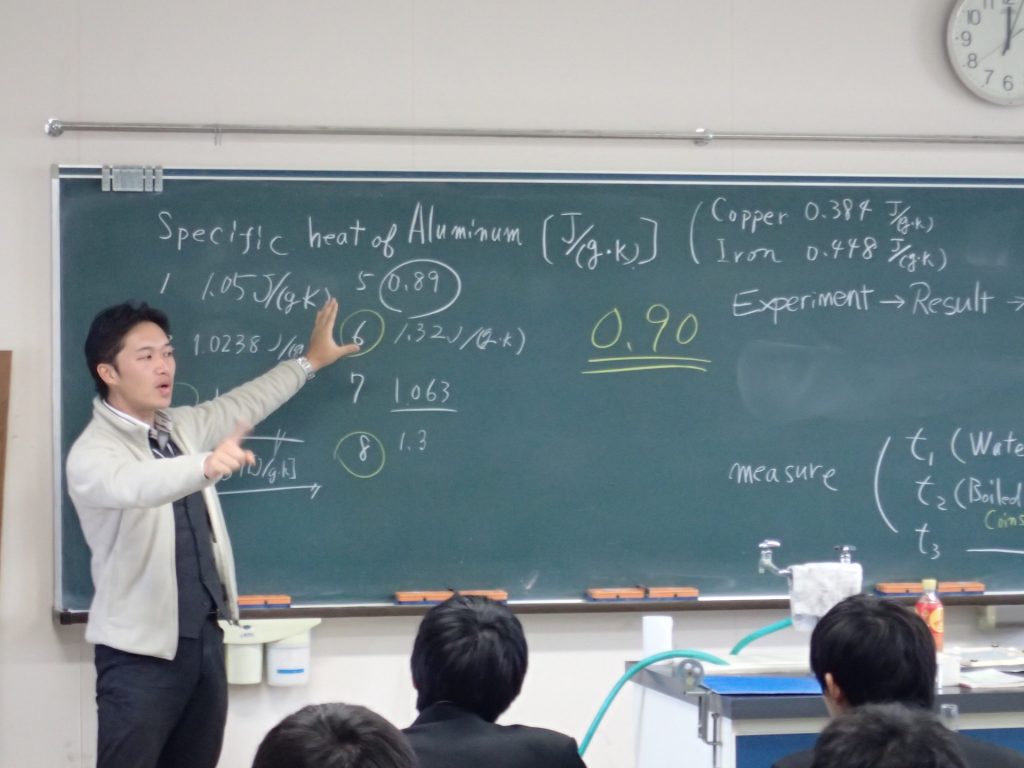 Specific heat of Aluminum [J/(g·K)]
(Copper 0.384 J/(g·K)
Iron 0.448 J/(g·K)
1 1.05 J/(g·K)
5 0.89
1.0238 J/(g
6 1.32 J/(g·K)
7 1.063
[J/g·K]
8 1.3
0.90
Experiment → Result →
measure
t1 (Wate
t2 (Boiled
Coins
t3
10 11 12
9
8
7 6